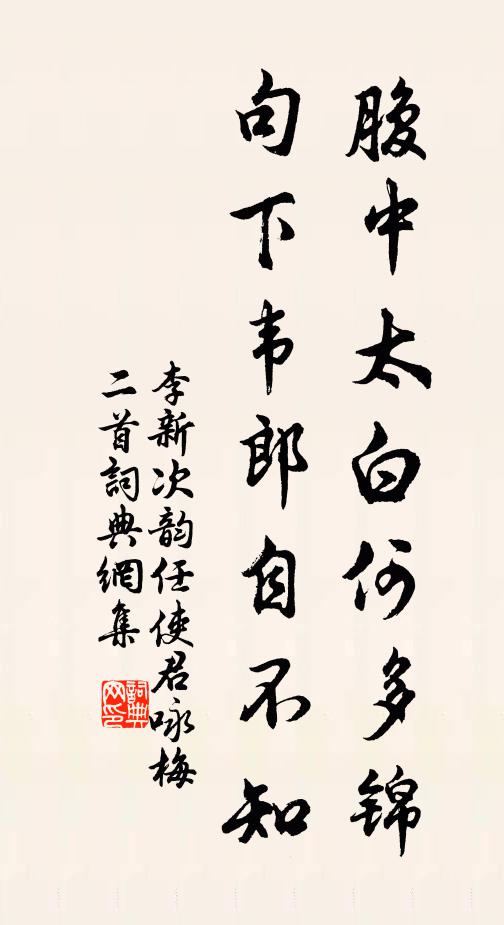 腹中太白何多錦
句下韦郎自不知
李新次韵任使君咏梅
二首詞典網集
詞典
网印